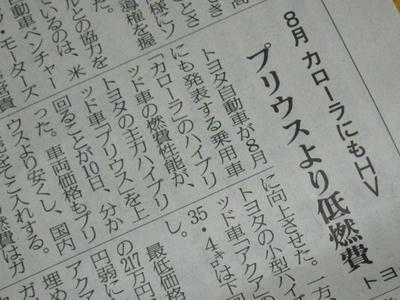 8月 カローラにもHV
プリウスより低燃費
トヨタ自動車が8月
にも発表する乗用車
「カローラ」のハイブリ
ッド車の燃費性能が、
トヨタの主力ハイブリ
ッド車「プリウス」を上
回ることが10日、分か
った。車両価格もプリ
ウスより安くし、国内
をてこ入れする。
に向上させた。一方
トヨタの小型ハイ
ッド車「アクア
35・4㌔は下
し。
最低価格
の217万円
円弱に
アクア
埋め
ガ
ルとの協力を
ているのは、米
動車ベンチャー
・モーターズ
導権を握
様にソ
とき
高
トヨ